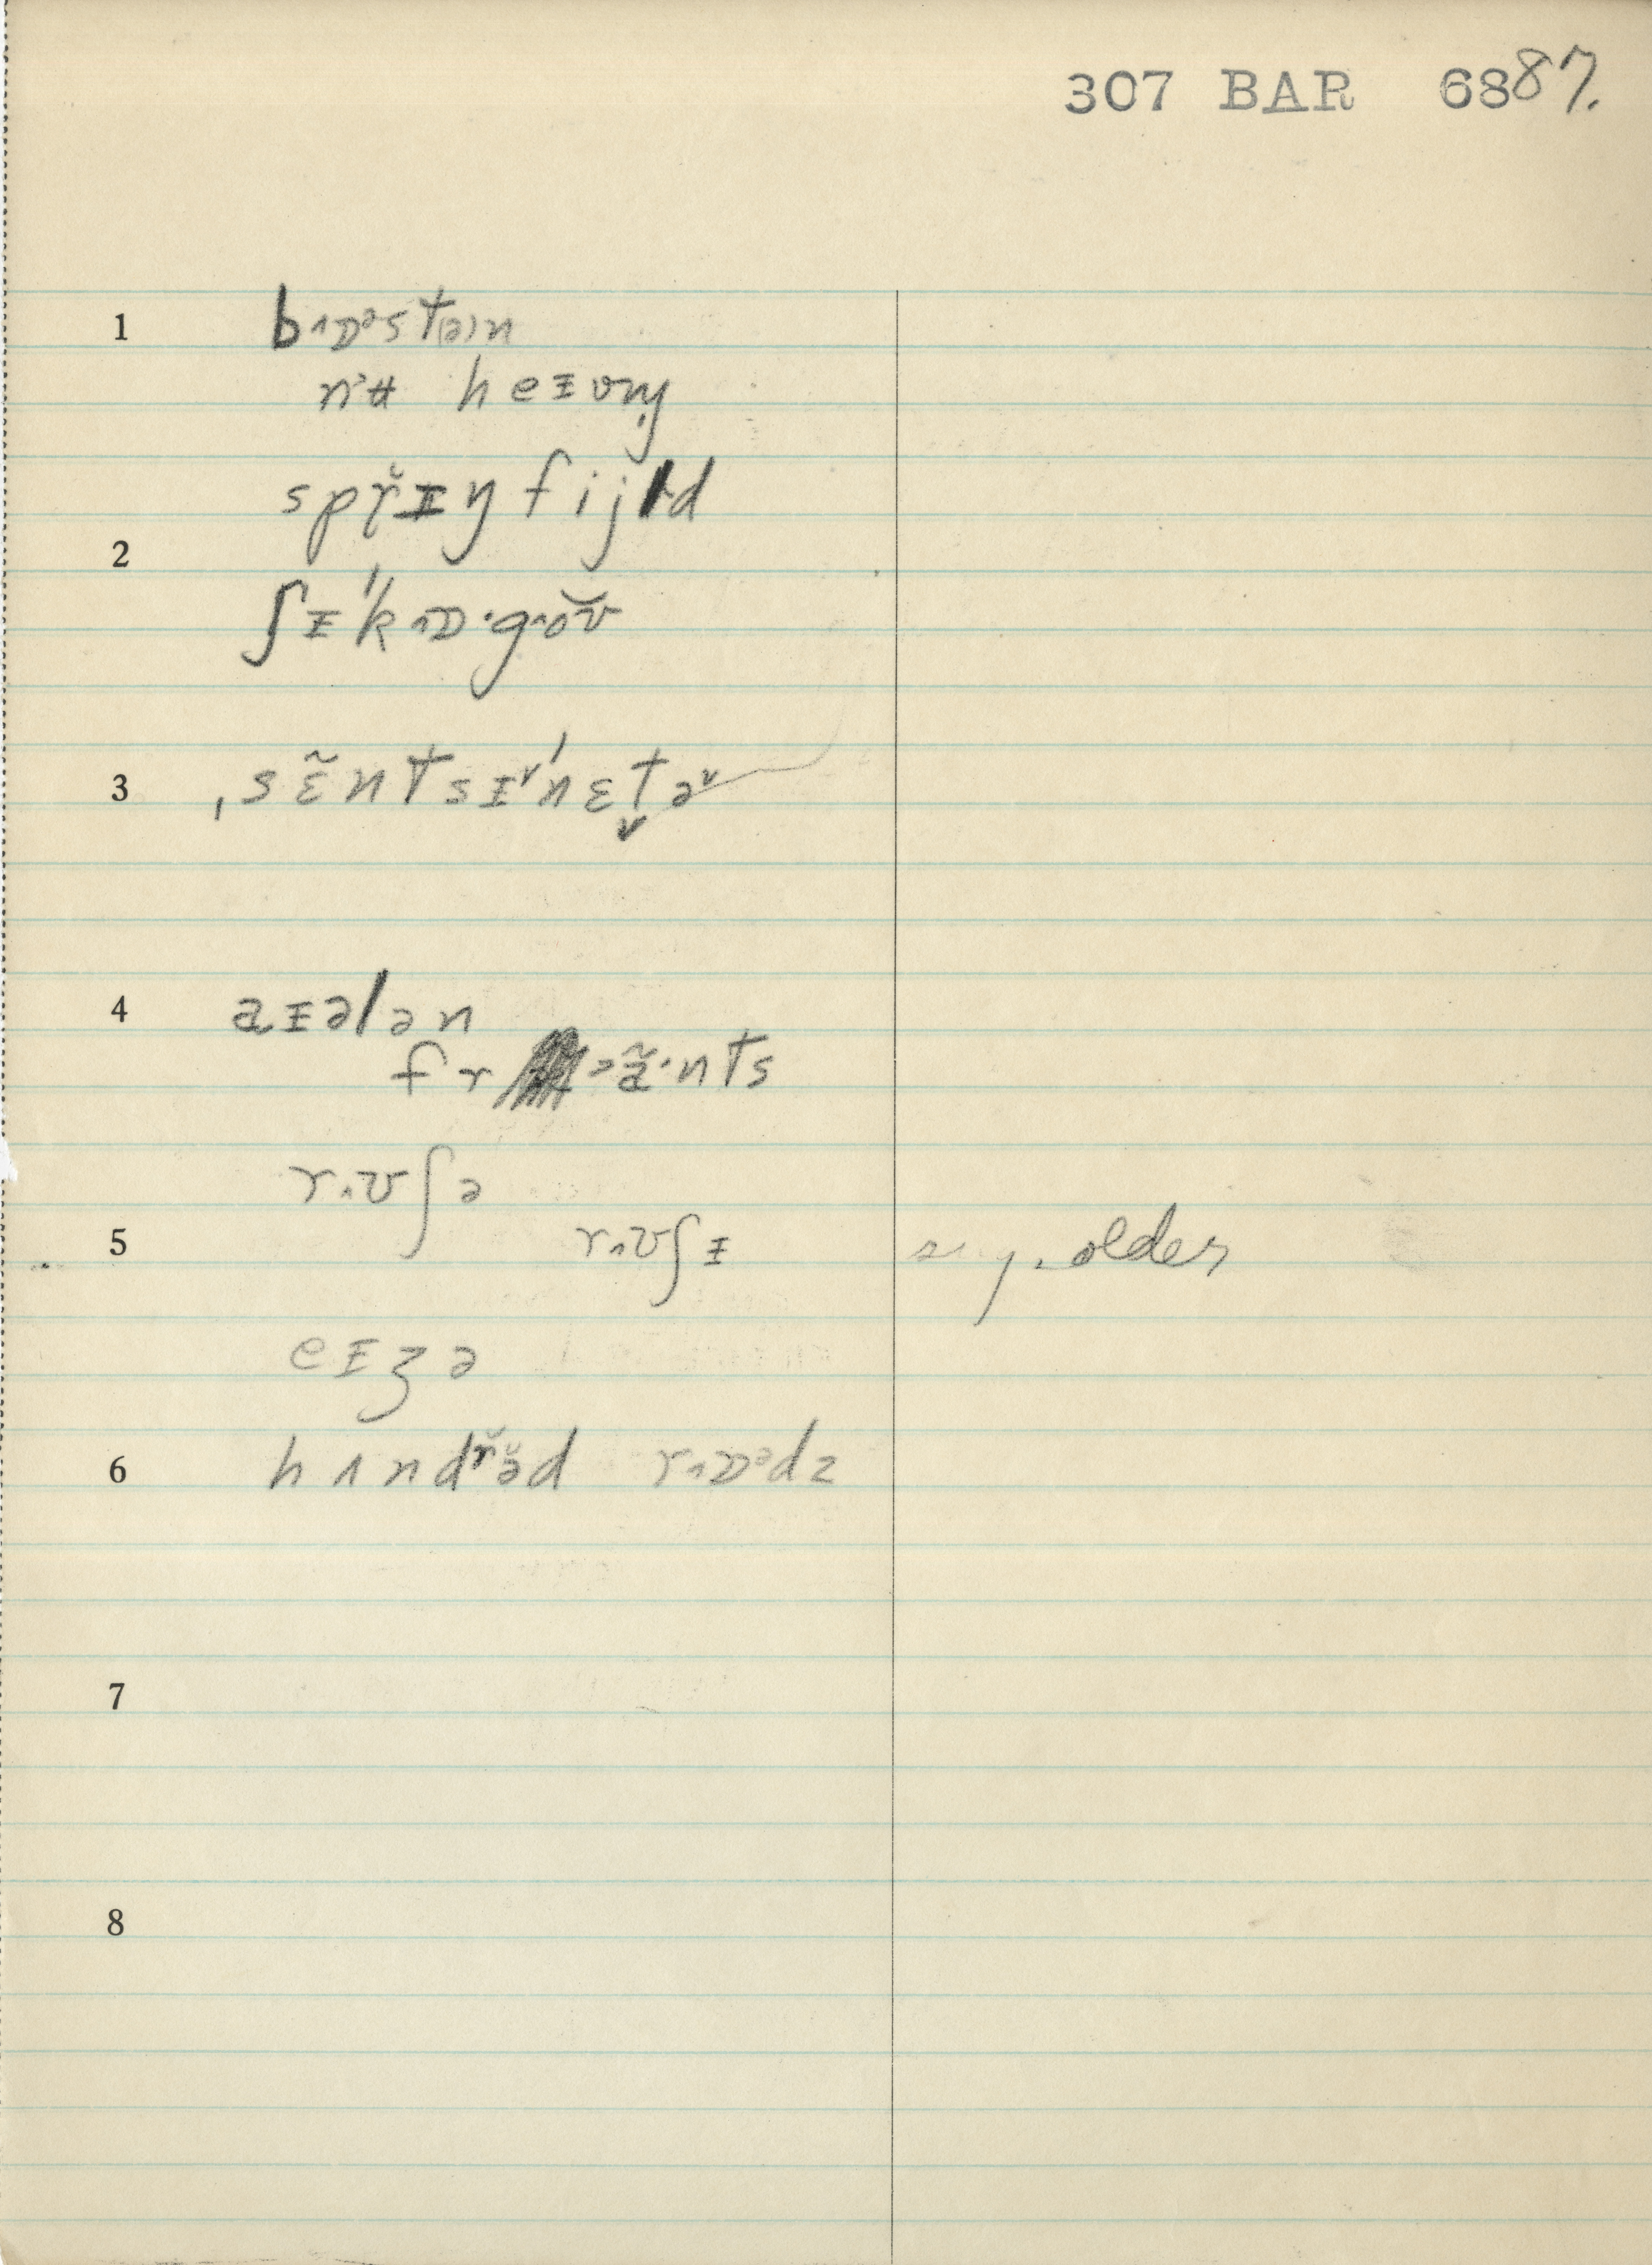 307 BAR 6887.
1 b^ɒᵊst(ə)n
nʲʉ heɪvn̩
sprɪ̆ŋfijld
2
ʃɪˈk^ɒ·g^ŏʊ̆
3 ˌsɛ̃ntsɪ˅ˈnɛt̬ə˅
4 aɪələn
fr ᵊã·nts
r^ʊʃə
5 r^ʊʃɪ older
eɪʒə
6 hʌndr̆ə̆d r^ɒᵊdz
7
8